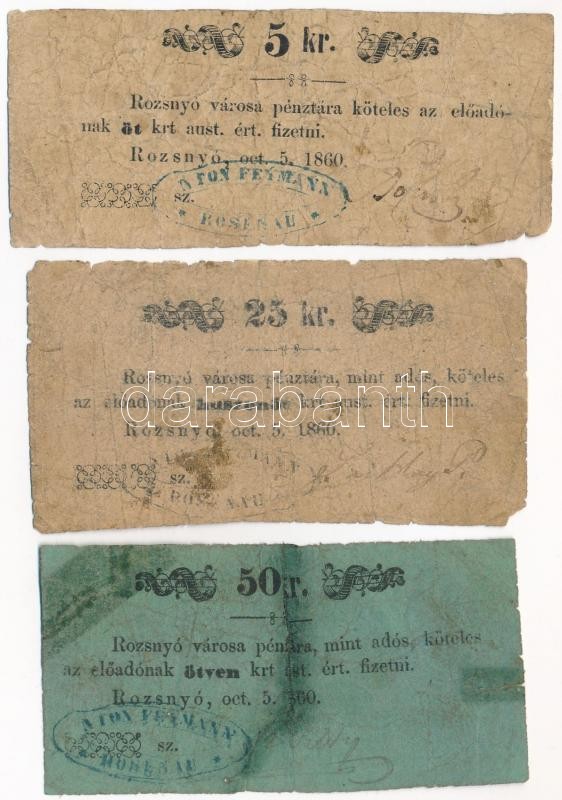 5 kr.
Rozsnyó városa pénztára köteles az előadó-
nak öt krt aust. ért. fizetni.
Rozsnyó, oct. 5. 1860.
sz.
ANTON FEYMANN
* ROSENAU *
25 kr.
Rozsnyó városa pénztára, mint adós, köteles
az előadónak huszonöt krt aust. ért. fizetni.
Rozsnyó, oct. 5. 1860.
sz.
ROSENAU
darabanth
50 kr.
Rozsnyó városa pénztára, mint adós, köteles
az előadónak ötven krt ast. ért. fizetni.
Rozsnyó, oct. 5. 860.
sz.
ANTON FEYMANN
* ROSENAU *